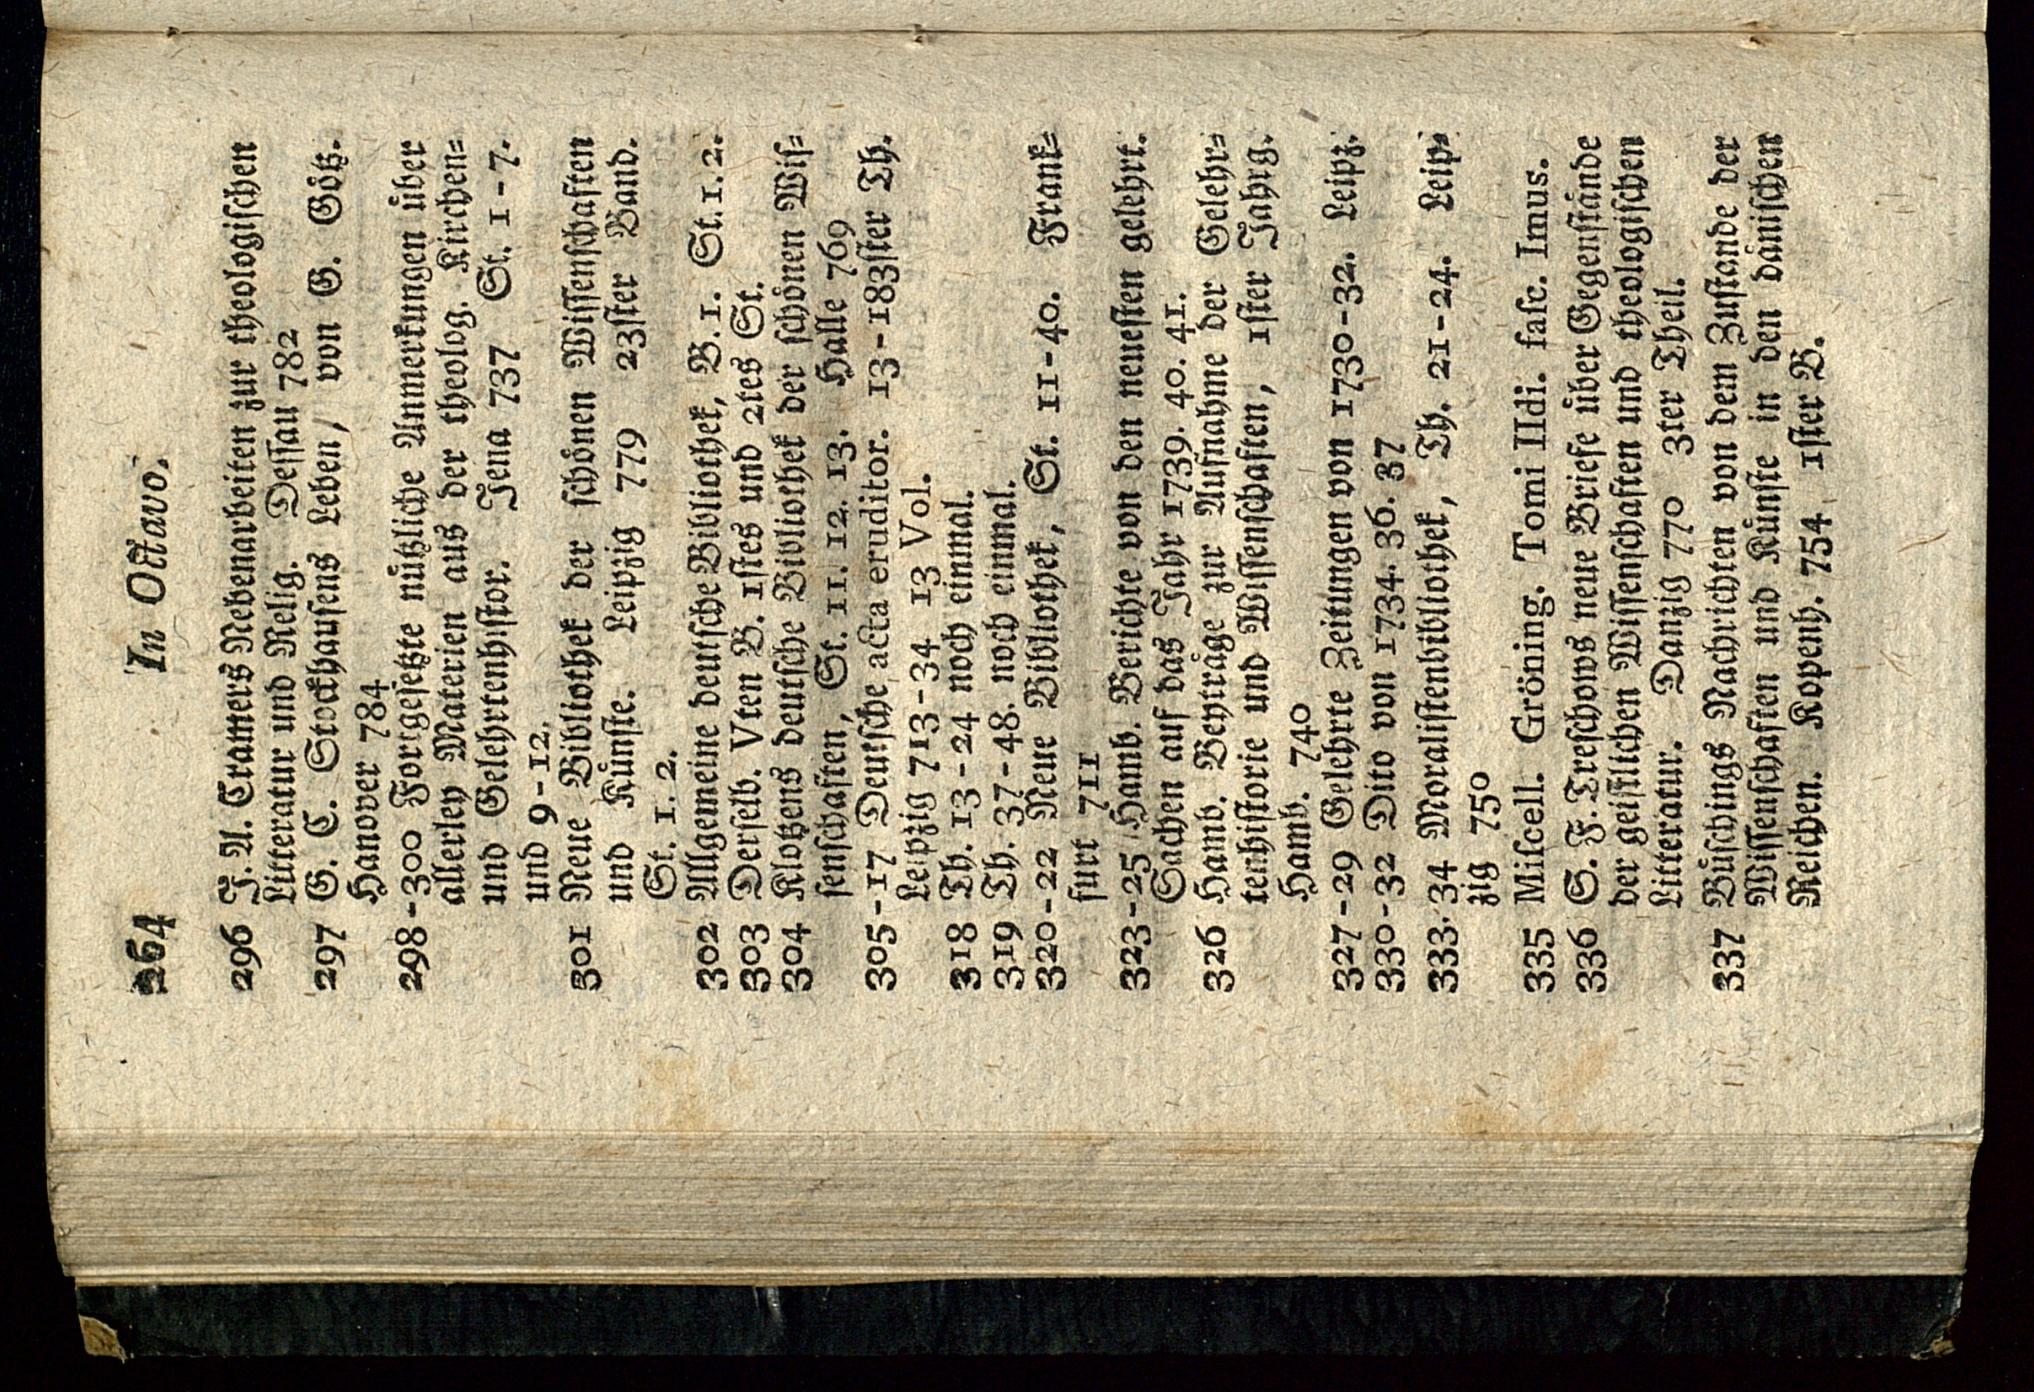 264 In Octavo.
296 F. A. Cramers Nebenarbeiten zur theologischen
Litteratur und Relig. Dessau 782
297 G. C. Stockhausens Leben, von G. Götz.
Hanover 784
298-300 Fortgesetzte nützliche Anmerkungen über
allerley Materien aus der theolog. Kirchen-
und Gelehrtenhistor. Jena 737 St. 1-7.
und 9-12.
301 Neue Bibliothek der schönen Wissenschaften
und Künste. Leipzig 779 23ster Band.
St. 1. 2.
302 Allgemeine deutsche Bibliothek, B. 1. St. 1. 2.
303 Derselb. Vten B. 1stes und 2tes St.
304 Klotzens deutsche Bibliothek der schönen Wis-
senschaften, St. 11. 12. 13. Halle 769
305-17 Deutsche acta eruditor. 13-183ster Th.
Leipzig 713-34 13 Vol.
318 Th. 13-24 noch einmal.
319 Th. 37-48. noch einmal.
320-22 Neue Bibliothek, St. 11-40. Frank-
furt 711
323-25 Hamb. Berichte von den neuesten gelehrt.
Sachen auf das Jahr 1739. 40. 41.
326 Hamb. Beyträge zur Aufnahme der Gelehr-
tenhistorie und Wissenschaften, 1ster Jahrg.
Hamb. 740
327-29 Gelehrte Zeitungen von 1730-32. Leipz.
330-32 Dito von 1734. 36. 37
333-34 Moralistenbibliothek, Th. 21-24. Leip-
zig 750
335 Miscell. Gröning. Tomi IIdi. fasc. Imus.
336 S. F. Treschows neue Briefe über Gegenstände
der geistlichen Wissenschaften und theologischen
Litteratur. Danzig 770 3ter Theil.
337 Büschings Nachrichten von dem Zustande der
Wissenschaften und Künste in den dänischen
Reichen. Kopenh. 754 1ster B.